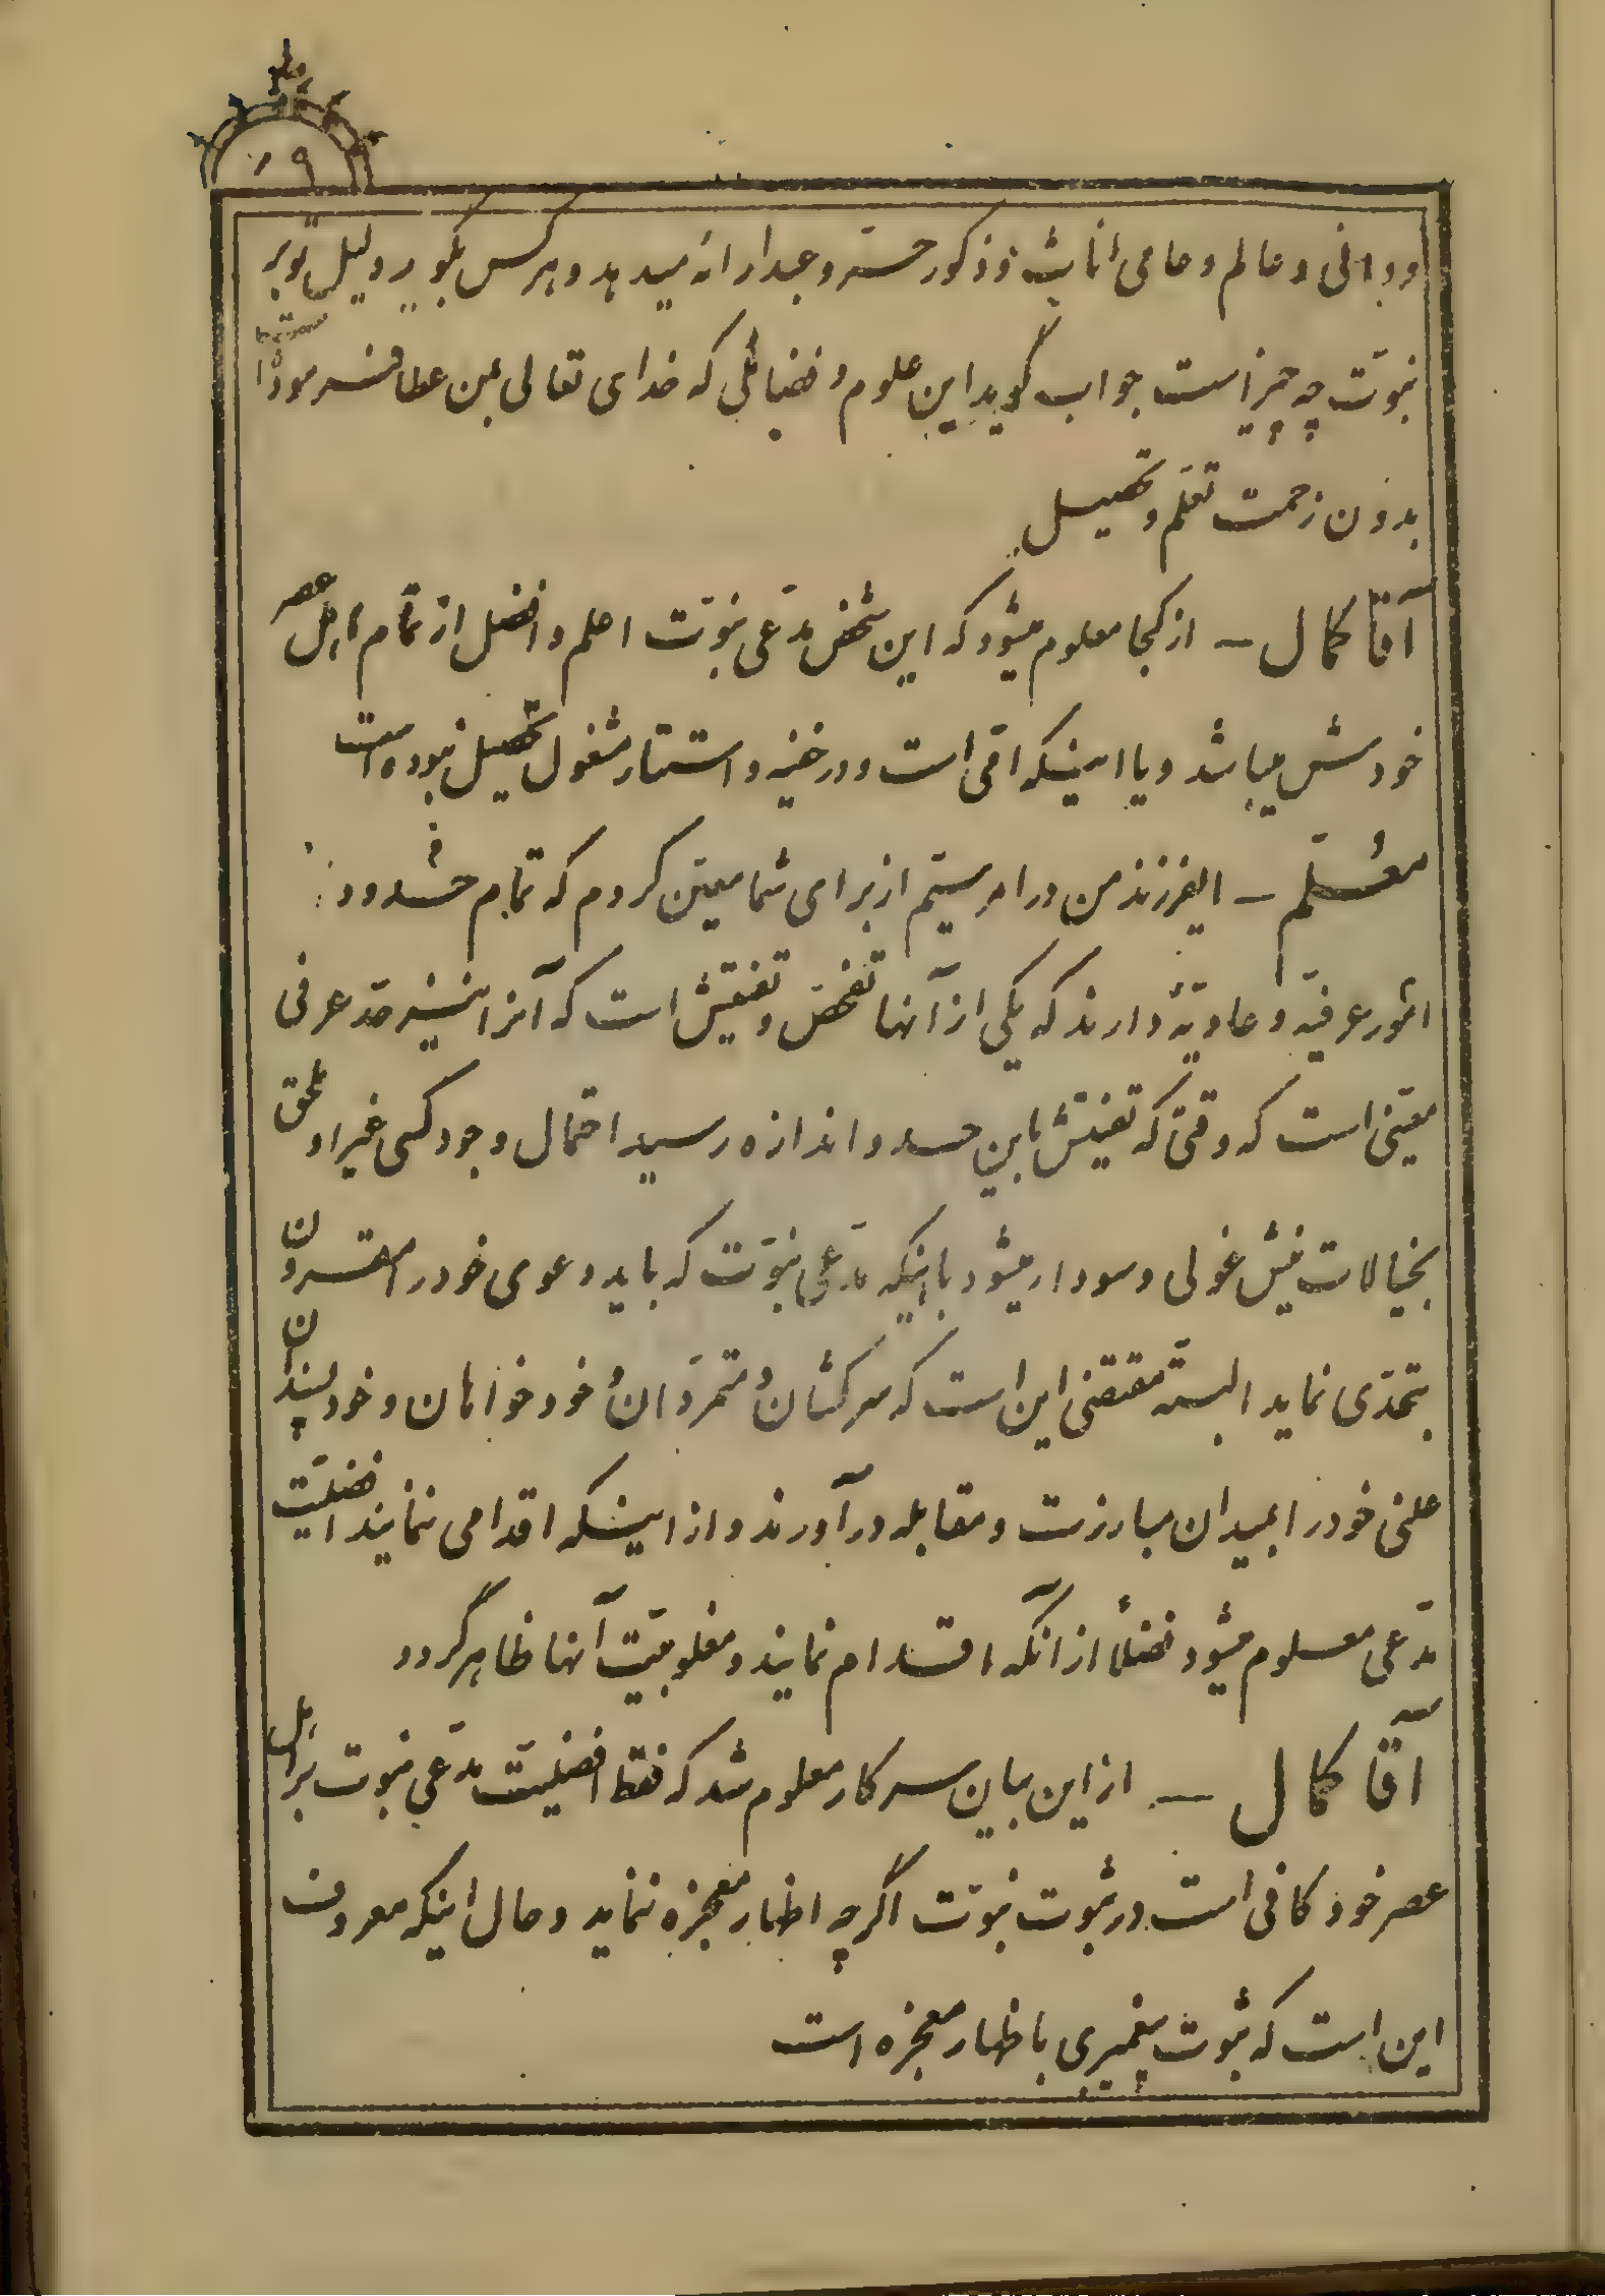 ۹
و دانی و عالم و عامی اناث و ذکور حسّ و عبد ارائه میدهد و هر کس بگوید دلیل تو بر
نبوّت چه چیز است جواب گوید این علوم و فضائلی که خدای تعالی بمن عطا فرموده است
بدون زحمت تعلّم و تحصیل
آقا کمال ــ از کجا معلوم میشود که این شخص مدّعی نبوّت اعلم و افضل از تمام اهل عصر
خودش میباشد و یا اینکه امّی است و در خفیه و استتار مشغول تحصیل نبوده است
معلّم ــ ایفرزند من در امر سیّم از برای شما معیّن کردم که تمام حدود
امور عرفیّه و عادیّه دارند که یکی از آنها تفحّص و تفتیش است که آنرا نیز حدّ عرفی
معیّنی است که وقتی که تفتیش باین حد و اندازه رسید احتمال وجود کسی غیر او ملحق
بخیالات نیش غولی و سودا میشود با اینکه مدّعی نبوّت که باید دعوی خود را مقرون
بتحدّی نماید البته مقتضی این است که سرکشان و متمرّدان و خودخواهان و خودپسندان
علنی خود را بمیدان مبارزت و مقابله درآورند و از اینکه اقدامی ننمایند افضلیّت
مدّعی معلوم میشود فضلاً از آنکه اقدام نمایند و مغلوبیّت آنها ظاهر گردد
آقا کمال ــ از این بیان سرکار معلوم شد که فقط افضلیّت مدّعی نبوت بر اهل
عصر خود کافی است در ثبوت نبوّت اگر چه اظهار معجزه ننماید و حال اینکه معروف
این است که ثبوت پیغمبری باظهار معجزه است